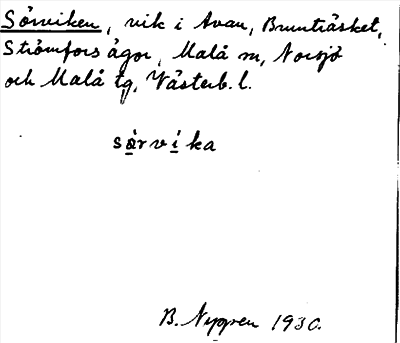 Sörviken, vik i Avan, Brunträsket,
Strömfors ägor, Malå sn, Norsjö
och Malå tg, Västerb. l.
sörvika
B. Nygren 1930.